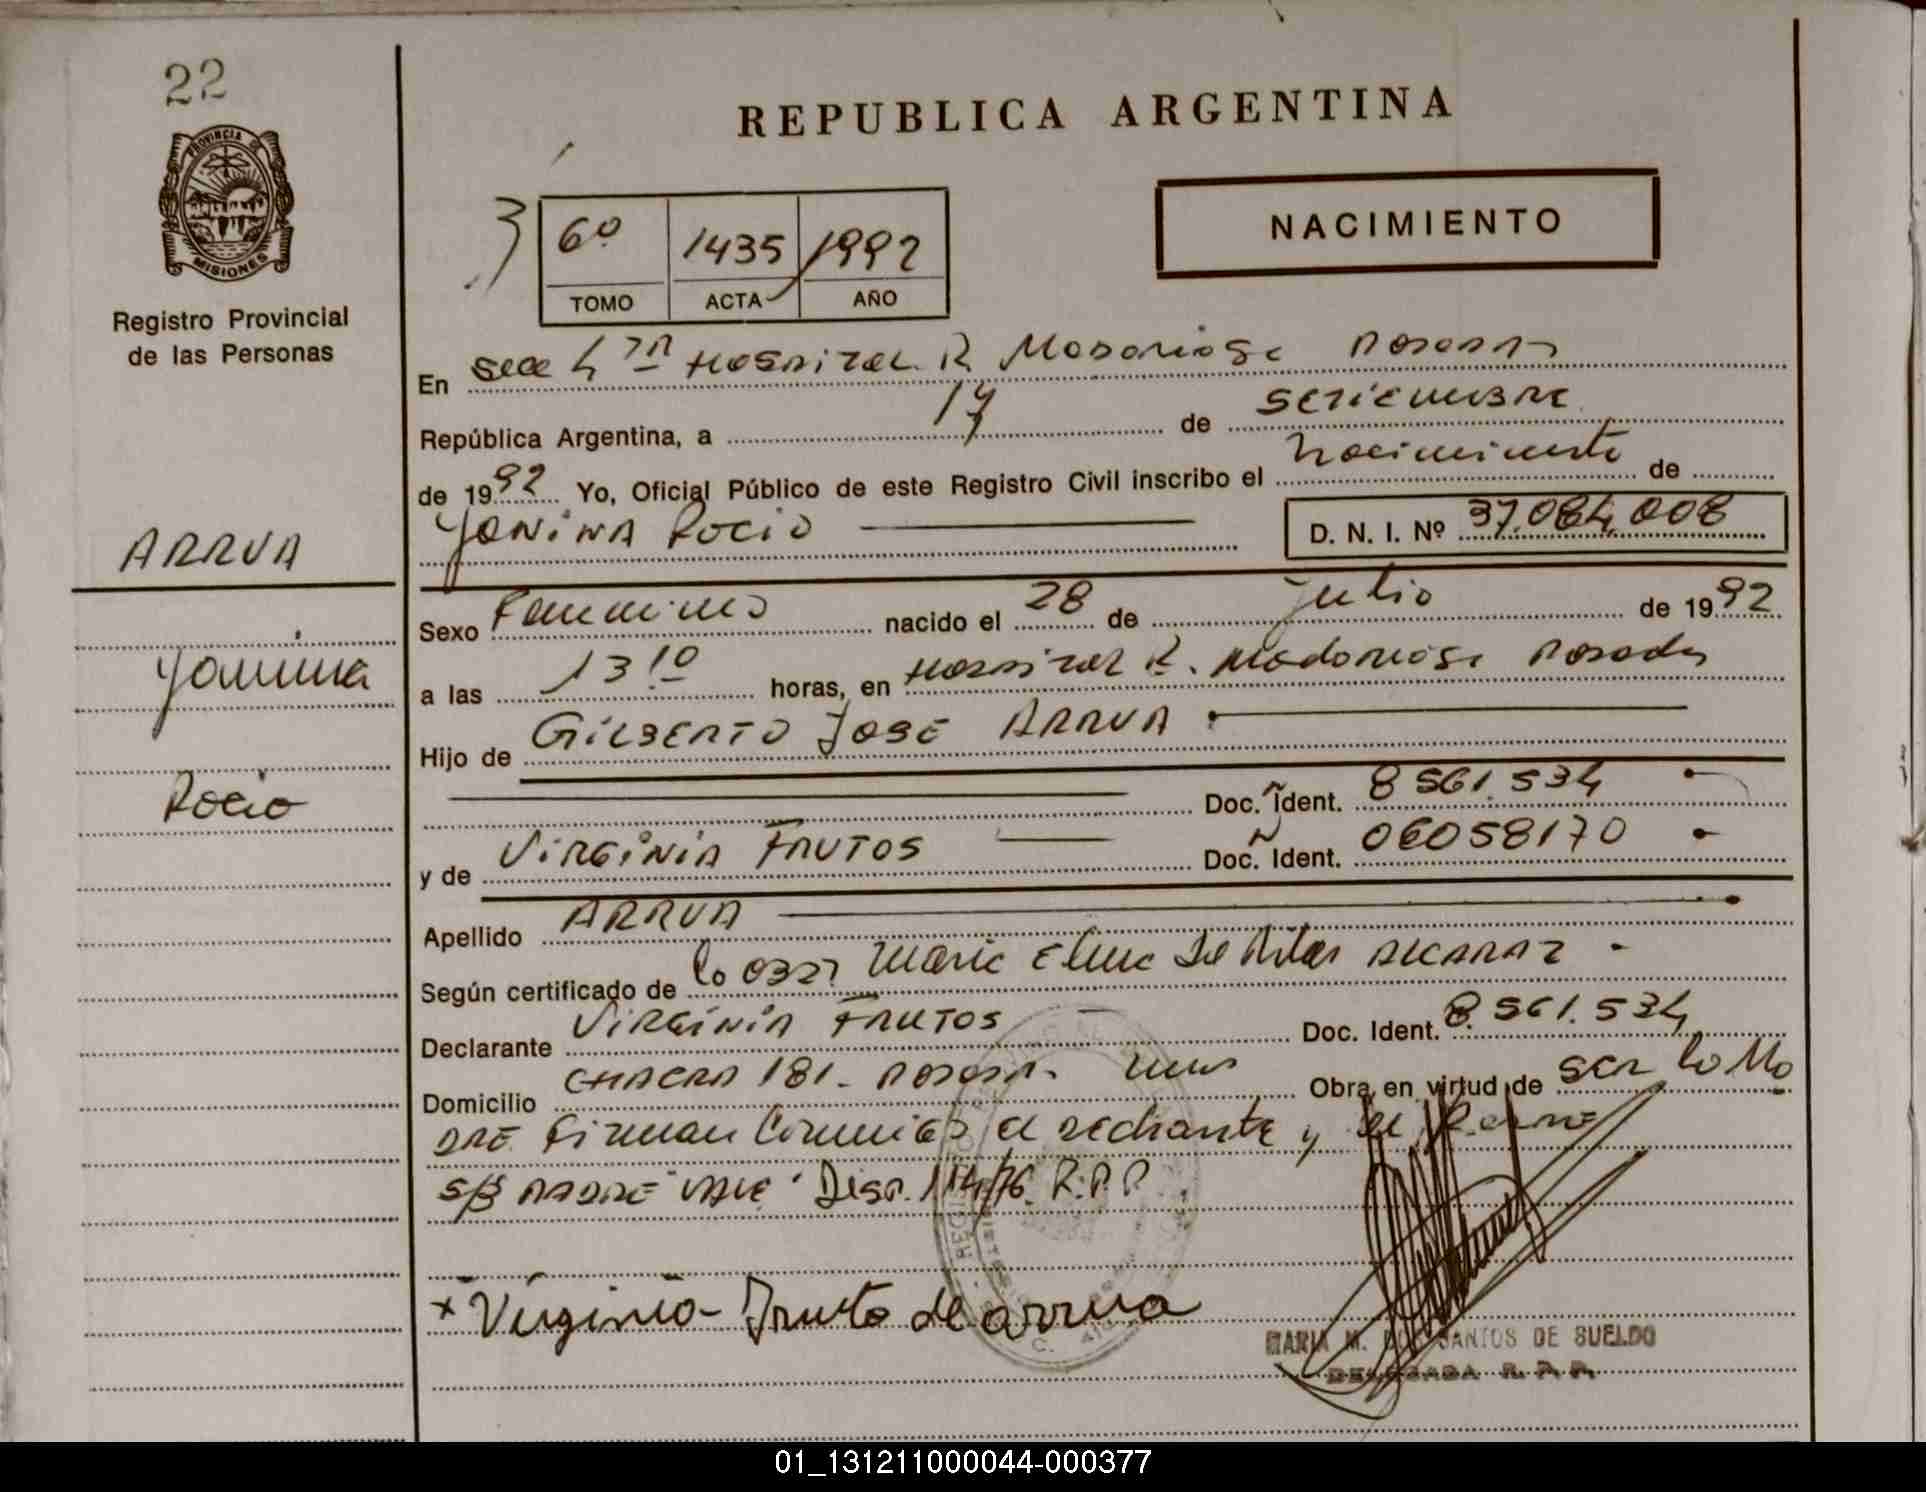 22
PROVINCIA DE MISIONES
Registro Provincial
de las Personas
ARRUA
Yanina
Rocio
REPUBLICA ARGENTINA
NACIMIENTO
6º 1435 1992
TOMO ACTA AÑO
En Secc 4 Hospital R Madariaga Posadas
República Argentina, a 17 de SETIEMBRE
de 1992 Yo, Oficial Público de este Registro Civil inscribo el Nacimiento de
YANINA ROCIO D. N. I. Nº 37.084.008
Sexo Femenino nacido el 28 de julio de 1992
a las 13 10 horas, en Hospital R. Madariaga Posadas
Hijo de GILBERTO JOSE ARRUA
Doc. Ident. 8 561.534
y de VIRGINIA FRUTOS Doc. Ident. 06058170
Apellido ARRUA
Según certificado de la Maria Elena Del Pilar ALCARAZ
Declarante VIRGINIA FRUTOS Doc. Ident. 8.561.534
Domicilio CHACRA 181. Obra en virtud de ser la Ma
DRE. Firman Conmigo el
S/B PADRE VALE Disp. 114/76 R.P.P.
x Virginia - Fruto de arrua
MARIA M. DOS SANTOS DE SUELDO
DELEGADA R. P. P.
01_131211000044-000377